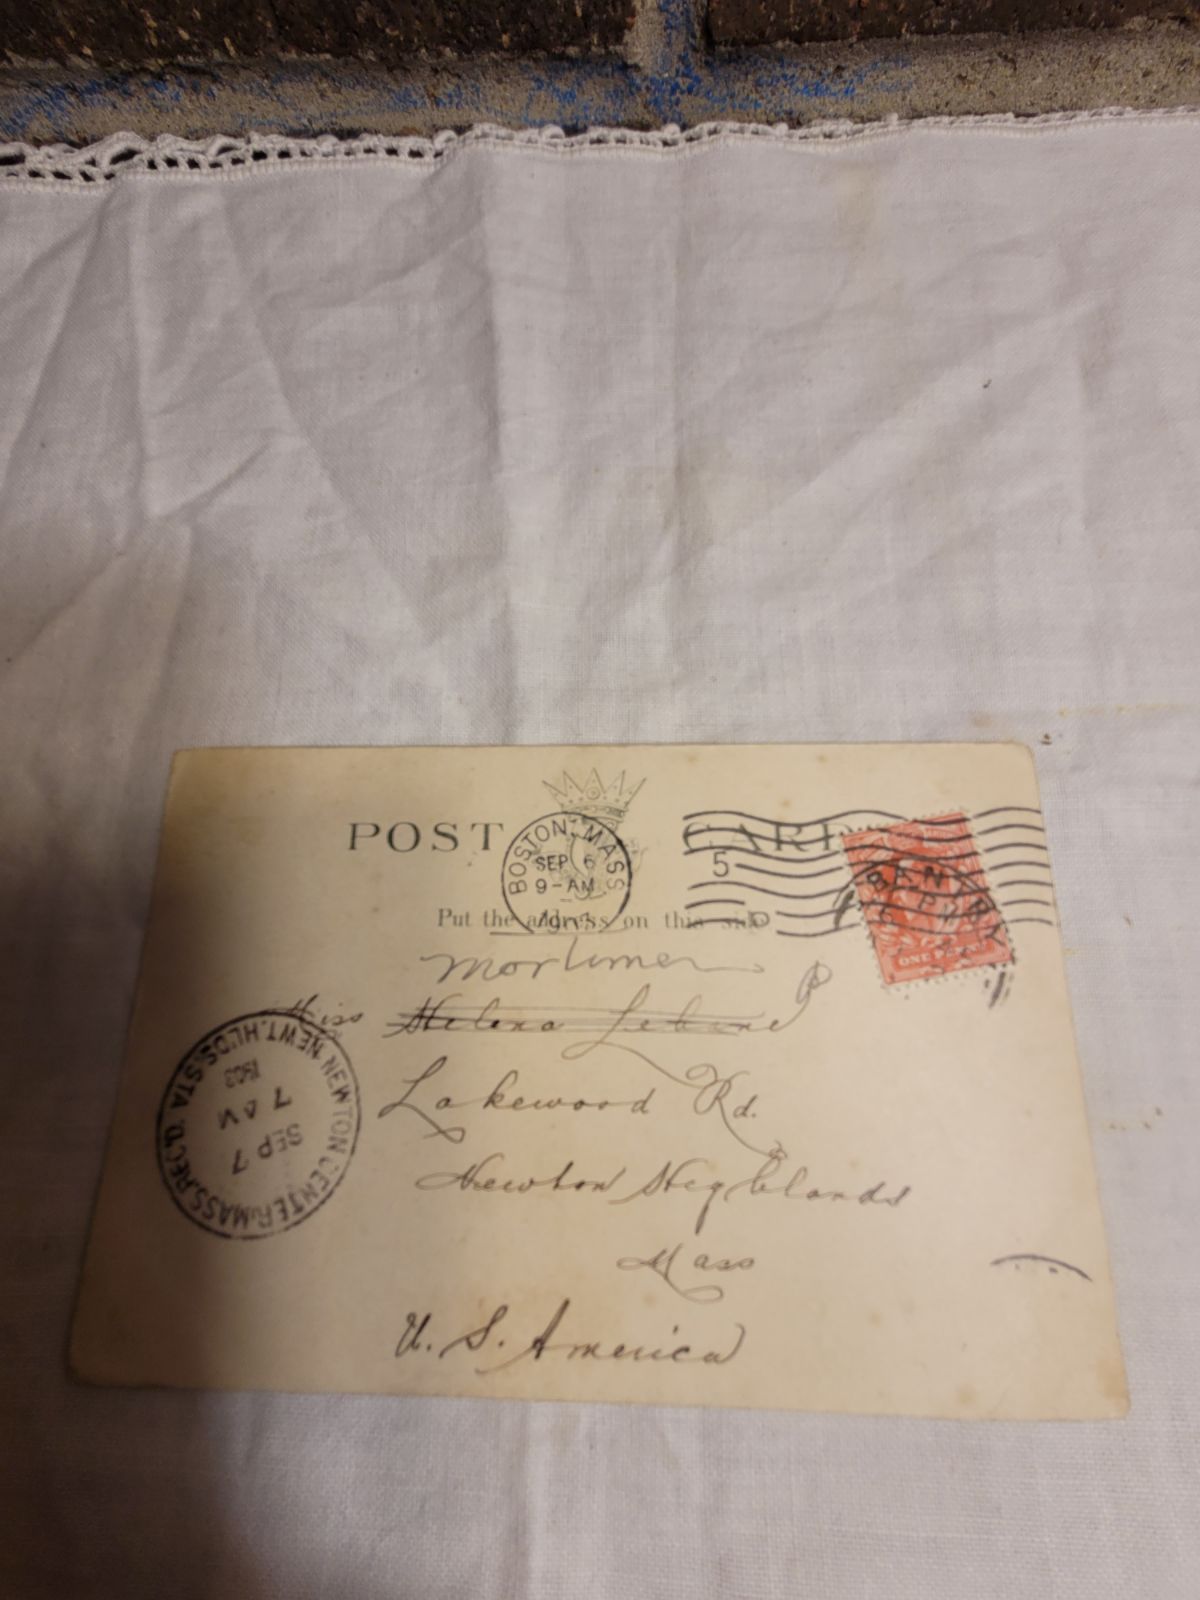 POST CARD
BOSTON, MASS
SEP 6
9-AM
5
Put the address on this side
BANTRY
ONE PENNY
Mortimer
Miss Helena
Lakewood Rd.
Newton Highlands
Mass
U. S. America
NEWTON CENTER, MASS. REC'D.
NEWT. HLDS. STA
SEP 7
7 AM
1903